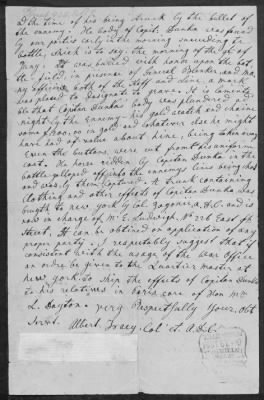 the time of his being struck by the bullet of
the enemy. The body of Capt. Dunka was found
by our parties early in the morning succeeding the
battle, which is to say, the morning of the 9th of
June. It was buried with honor upon the
the field, in presence of General Blenker and ma-
ny officers both of the staff and line, a mark
was placed to designate the grave. It is lamenta-
ble that Captain Dunka's body was plundered
might by the enemy - his gold watch and chaine
some $300.00 in gold and whatever else he might
have had of value about him, being taken away
Even the buttons were cut from his uniform
coat. The horse ridden by Captain Dunka in the
battle galloped off into the ennemys lines being shot
and was by them captured. A trunk containing
clothing and other effects of Captain Dunka was
brought to new york by Col. Zagonyi, A.D.C. and is
now in charge of Mr E. Ludwigh, No 226 East 9th
Street, It can be obtained on application of any
proper party. I respectably suggest that if
consistent with the usage of the War Office
an ordre be given to the Quartier master at
new york to ship the effects of Capitan Dunka
to his relatives in Paris care of Hon Wm
L. Dayton - very Respectfully Your obt
Servt. Albert Tracy. Col. & A.D.C.